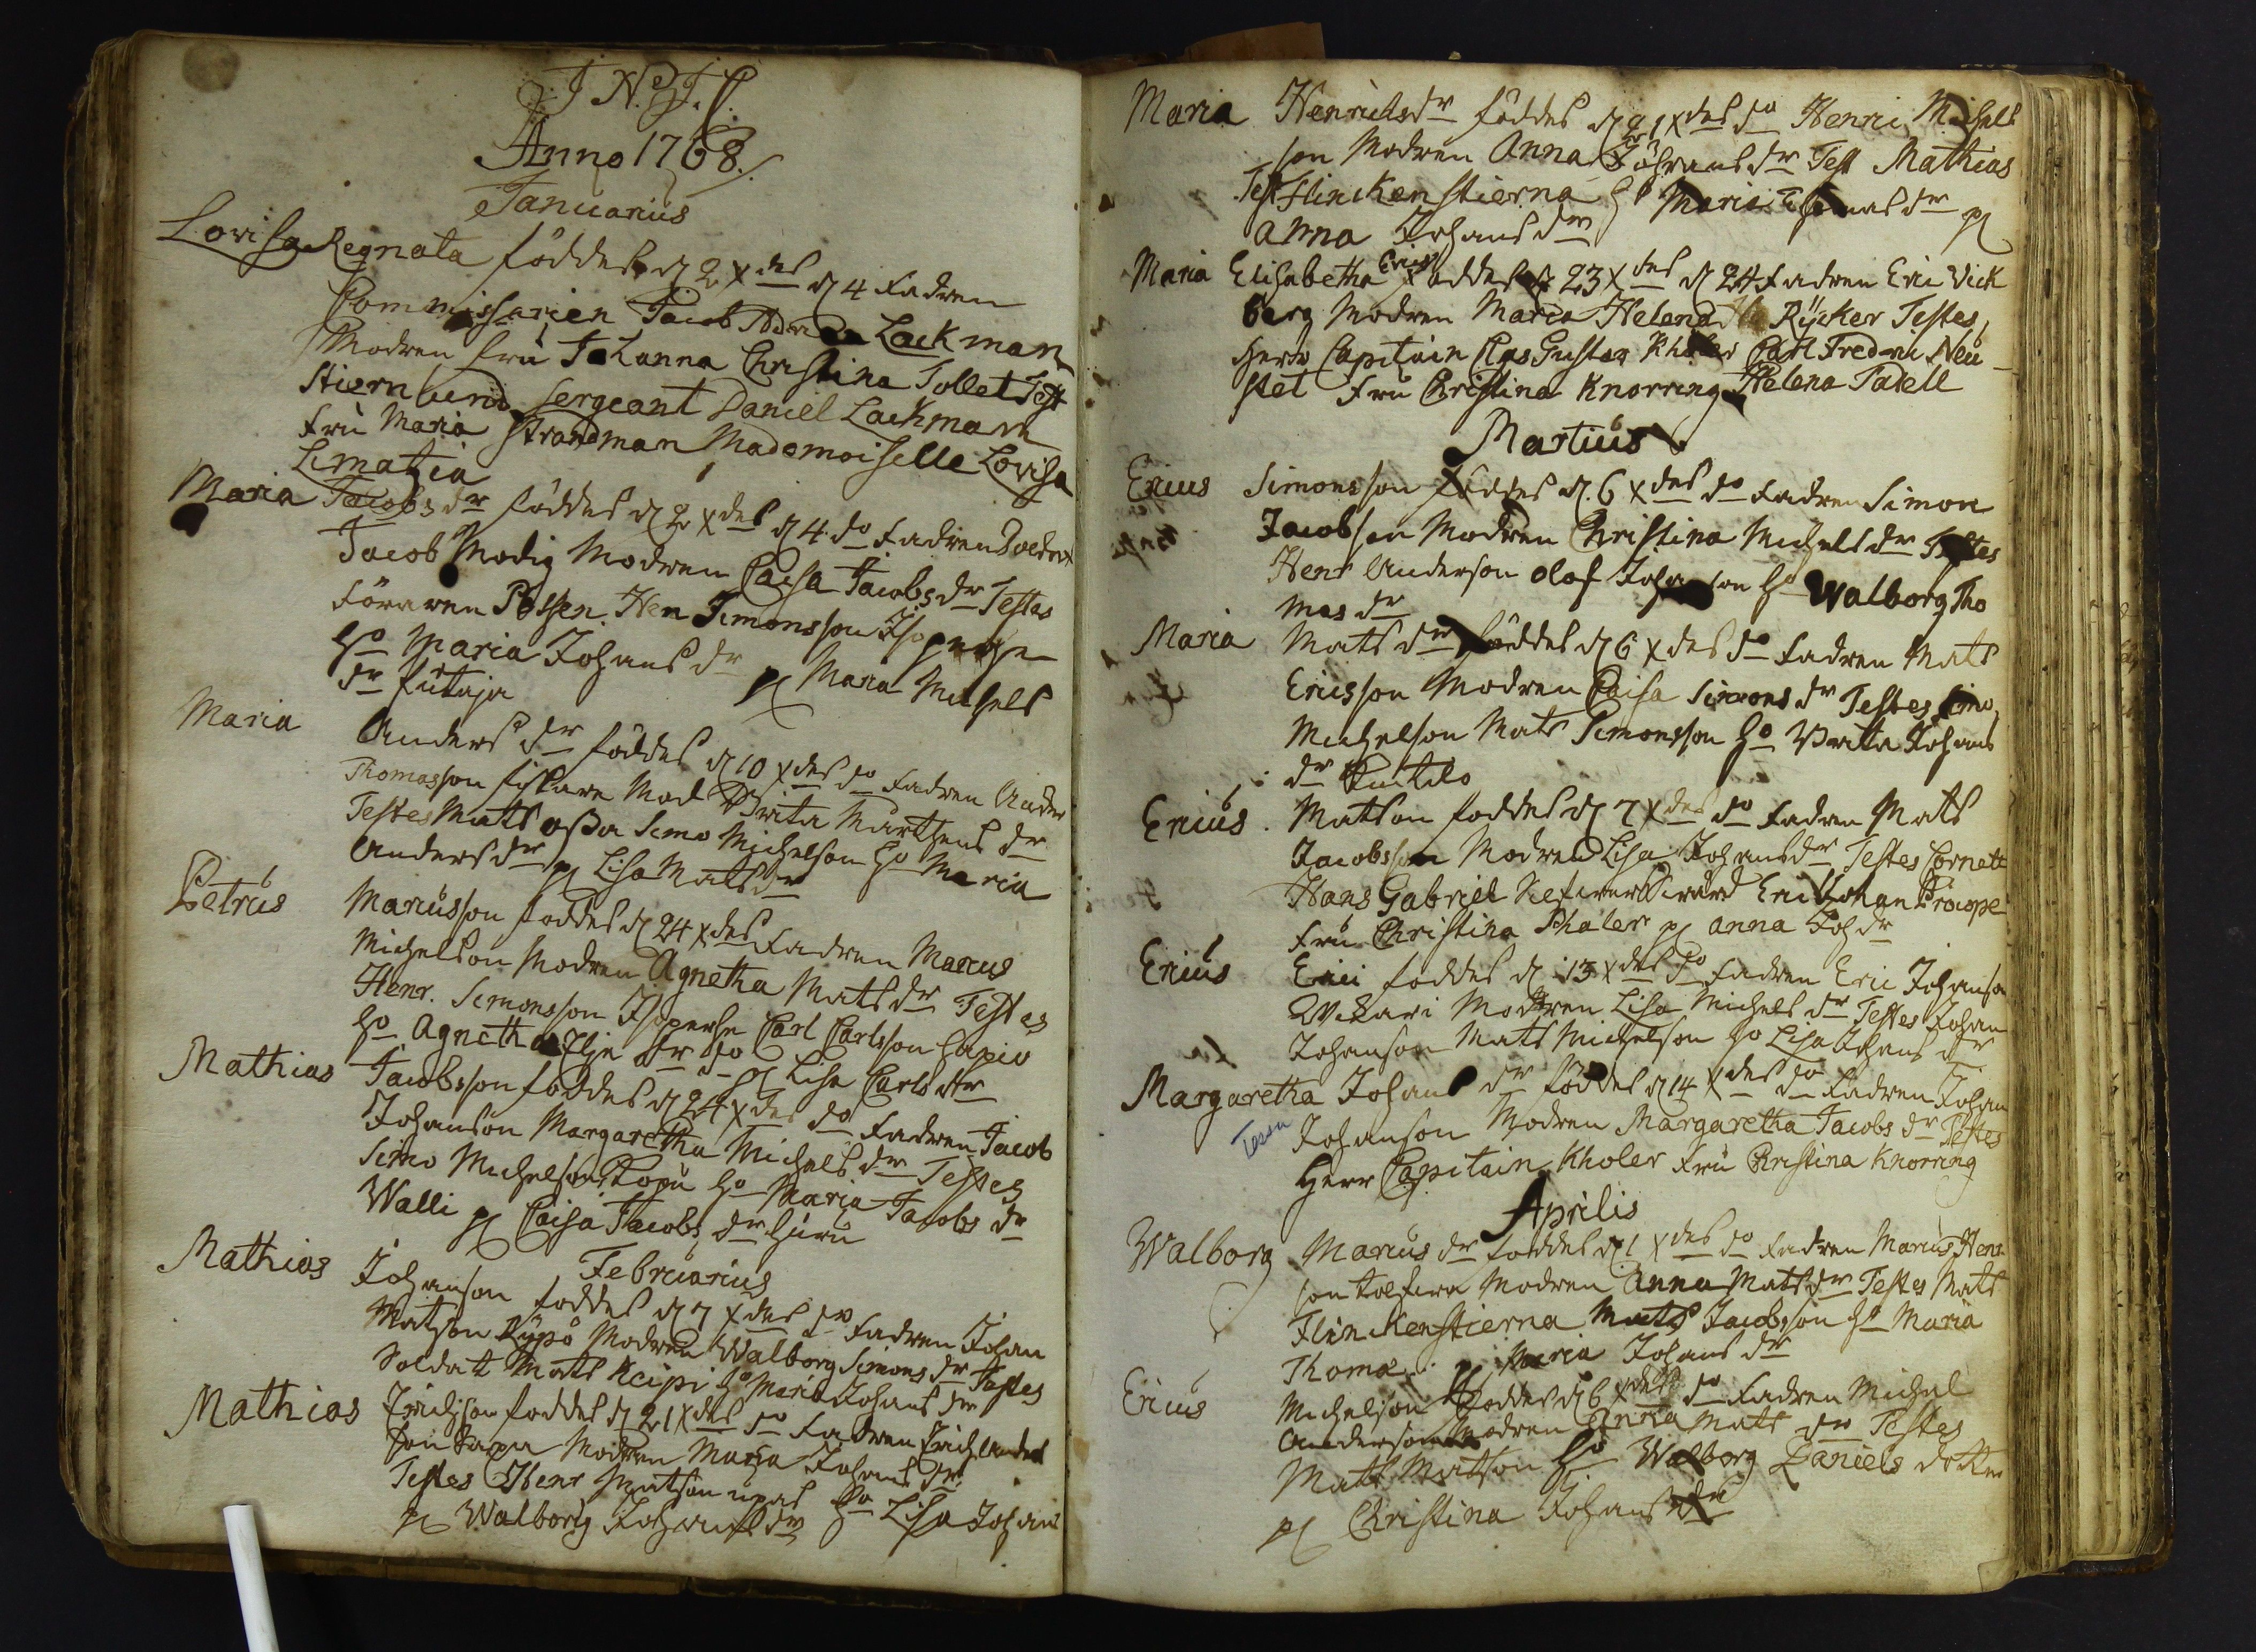 I N. J. C.
Anno 1768.
Januarius
Lovisa Regnata föddes d 2 xdes d 4 Fadren
Commissarien Jacob Lackman
Modren Fru Johanna Christina Tollet Test
Stiernlund Sergeant Daniel Lackman
Fru Maria Strandman Mademoiselle Lovisa
Limatia
Maria Jacobs dr föddes d 2 xdes d 4 do Fadren Soldat
Jacob Modig Modren Caisa Jacobs dr Testes
Föraren Possen. Hen Simonsson
Ho Maria Johans dr pf Maria Michels
dr
Maria Anders dr föddes d 10 xdes do Fadren Anders
Thomasson fiskare Mod Brita Mårthens dr
Testes Mats Simo Michelson Ho Maria
Anders dr pf Lisa Mats dr
Petrus Marcusson foddes d 24 xdes Fadren Marcus
Michelson Modren Agnetha Mats dr Testes
Henr. Simonsson Carl Carlsson
Ho Agnetha dr do pf Lisa Carls dr
Mathias Jacobsson föddes d 24 xdes do Fadren Jacob
Johanson Margaretha Michels dr Testes
Simo Michelson Ho Maria Jacobs dr
Walli pf Caisa Jacobs dr
Februarius
Mathias Johanson foddes d 7 xdes do Fadren Johan
Matson Modren Walborg Simons dr Testes
Soldat Mats Keipi Ho Maria Johans dr
Mathias Erichson foddes d 21 xdes do Fadren Erich Anders
son Modren Maria Johans dr
Testes Henr Matson Ho Lisa Johans
pf Walborg Johans dr
Maria Henrichs dr föddes d 21 xdes do Henric Michels
son Modren Anna Johans dr Test Mathias
Flinckenstierna Ho Maria Thomas dr pf
Anna Johans dr
Maria Elisabetha föddes d 23 xdes d 24 Fadren Eric Vick
berg Modren Maria Helena Rÿcker Testes
Herr Capitain Clas Gustav Carl Fredric Neu
stet Fru Christina Knorring Helena Tavell
Martius
Ericus Simonsson föddes d. 6 xdes do Fadren Simon
Jacobson Modren Christina Michels dr Testes
Henr Anderson Olof Johanson Ho Walborg Tho
mas dr
Maria Mats dr föddes d 6 xdes do Fadren Mats
Ericsson Modren Caisa Simons dr Testes Simo
Michelson Mats Simonsson Ho Brita Johans
dr
Ericus Matson foddes d 7 xdes do Fadren Mats
Jacobsson Modren Lisa Johans dr Testes Cornett
Hans Gabriel Eric Johan Procope
Fru Christina pf Anna Joh dr
Ericus Erici foddes d 13 xdes do Fadren Eric Johanson
Modren Lisa Michels dr Testes Johan
Johanson Mats Michelson Ho Lisa Johans dr
Margaretha Johans dr föddes d 14 xdes do Fadren Johan
Johanson Modren Margaretha Jacobs dr Testes
Herr Capitain Kholer Fru Christina Knorring
Aprilis
Walborg Marcus dr foddes d 1 xdes do Fadren Marcus Henr
son Modren Anna Mats dr Testes Mats
Flinckenstierna Mats Jacobsson Ho Maria
Thomæ pf Maria Johans dr
Ericus Michelson foddes d 6 xdes do Fadren Michel
Anderson Modren Anna Mats dr Testes
Mats Matson Ho Walborg Daniels dotter
pf Christina Johans dr